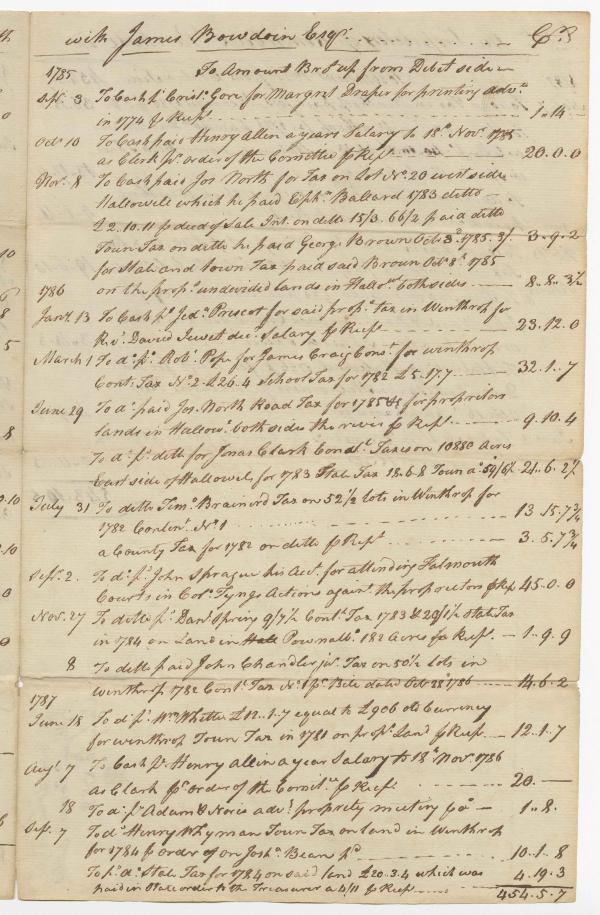 with James Bowdoin Esqr. . . . . . . . . Cr
1785 To Amount Bro.t up from Debit side —
Sepr. 3 To Cash pd Crisr. Gore for Margret Draper for printing adv.s
in 1774 p Rept. 1 .. 14 —
Octo 10 To Cash paid Henry Allin a years Salary to 18th Novr. 1785
as Clerk pr. order of the Comittee p Rept. 20 . 0 . 0
Novr. 8 To Cash paid Jos. North for Tax on Lot No. 20 west side
Hallowell which he paid Ephm. Ballard 1783 ditto —
£2.10.11 p deed of Sale Int. on ditto 15/3. 66/2 paid ditto
Town Tax on ditto he paid George Brown Octr. 3d. 1785. 3/ 3 . 9 . 2
for State and town Tax paid said Brown Octr 8th. 1785
1786 on the propr. undivided lands in Hallowl. both sides 8 .. 8 .. 3½
Jany. 13 To Cash pd Jeda. Prescot for said propr. tax in Winthrop for
Revd. David Jewet decd. Salary p Rept 23 . 12 . 0
March 1 To do. pd. Robt. Pope for James Craig Const. for Winthrop
Cont. Tax No. 2 £26.4 School Tax for 1782 £5.17.7 32 . 1 .. 7
June 29 To do paid Jos. North Road Tax for 1785 for propritors
lands in Hallowl. both sides the river p Rept. 9 . 10 . 4
To do. pd. ditto for Jonas Clark Const. Taxes on 10880 Acres
East side of Hallowel, for 1783 State Tax 18.6.8 Town do. 59/6½ 21 . 6 . 2½
July 31 To ditto Timo. Brainerd Tax on 52½ lots in Winthrop for
1782 Continl. No. 1 13 . 15 . 7¾
a County Tax for 1782 on ditto p Rept 3 . 5 . 7¾
Sepr. 2. To do. pd. John Sprague his Acct. for attending Falmouth
Courts in Coro. Tyngs Actions against. the propriotors p Rept 45 . 0 . 0
Nov. 27 To ditto pd. Danl. Spring 9/7½ Cont. Tax 1783 & 20/1½ State Tax
in 1784 on Land in Pownalbo. 182 Acres p Rept. — 1 .. 9 . 9
8 To ditto paid John Chandler junr. Tax on 50½ lots in
Winthrop 1782 Cont. Tax No. 1 pr. Bill dated Octr 28th 1786 14 . 6 . 2
1787
June 18 To do pd. Wm Whitte £12 .. 1 .. 7 equal to £906 old Currency
for Winthrop Town Tax in 1781 on propr. Land p Rept. — 12 . 1 . 7
Augt. 7 To Cash pd. Henry Allin a year Salary to 18th Novr. 1786
as Clark pr. order of the Comitee. p Rept 20 . —
18 To do. pd. Adams & Noris advt. propriety meeting 1 .. 8 .
Sep. 7 To do Henry Whyman Town Tax on land in Winthrop
for 1784 p order of on Josha. Bean pd 10 . 1 . 8
To pd. do. State Tax for 1784 on said land £20.3.4 which was 4 . 19 . 3
paid in State order to the Treasurer a 4/11 p Rept
454 . 5 . 7